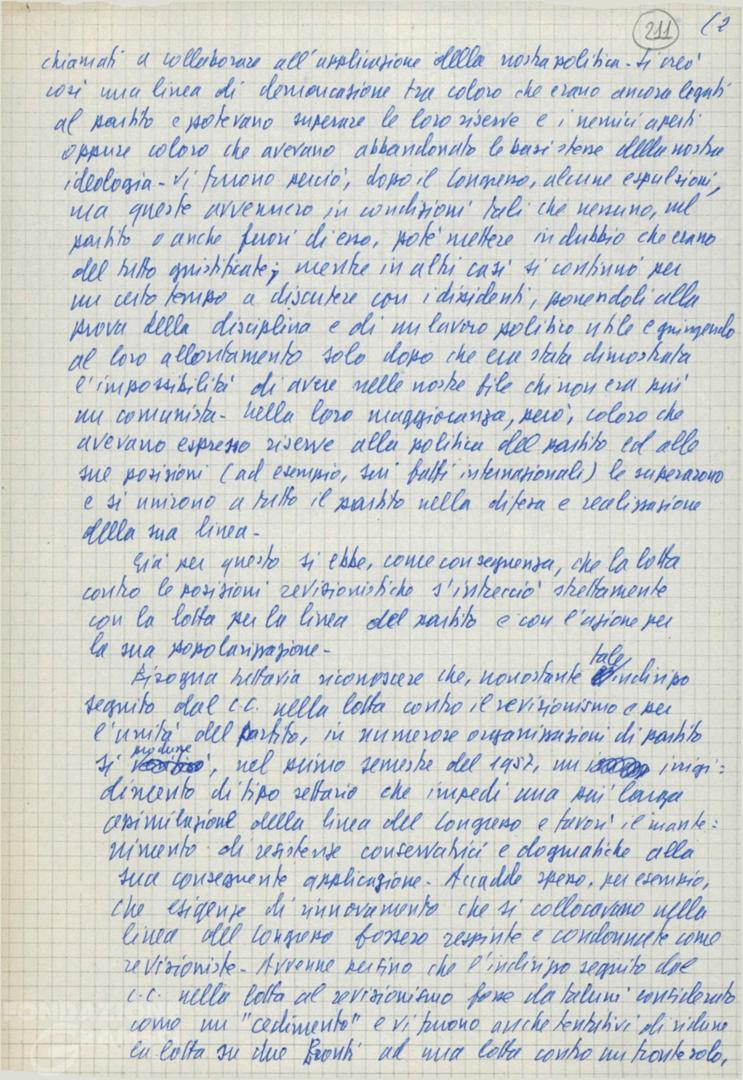 211 (2
chiamati a collaborare all'applicazione della nostra politica - Si creò
così una linea di demoncasione tra coloro che erano ancora legati
al partito e potevano superare le loro riserve e i nemici aperti
oppure coloro che avevano abbandonato le basi stesse della nostra
ideologia - Vi furono perciò, dopo il Congresso, alcune espulsioni,
ma queste avvennero in condizioni tali che nessuno, nel
partito o anche fuori di esso, poté mettere in dubbio che erano
del tutto giustificate; mentre in altri casi si continuò per
un certo tempo a discutere con i dissidenti, ponendoli alla
prova della disciplina e di un lavoro politico utile e giungendo
al loro allontamento solo dopo che era stata dimostrata
l'impossibilità di avere nelle nostre file chi non era più
un comunista - Nella loro maggioranza, però, coloro che
avevano espresso riserve alla politica del partito ed alle
sue posizioni (ad esempio, sui fatti internazionali) le superarono
e si unirono a tutto il partito nella difesa e realizzazione
della sua linea -
Già per questo si ebbe, come conseguenza, che la lotta
contro le posizioni revisionistiche s'intrecciò strettamente
con la lotta per la linea del partito e con l'azione per
la sua popolarizzazione -
Bisogna tuttavia riconoscere che, nonostante tale indirizzo
seguito dal C.C. nella lotta contro il revisionismo e per
l'unità del Partito, in numerose organizzazioni di partito
si produsse, nel primo semestre del 1957, un irrigi=
dimento di tipo settario che impedì una più larga
assimilazione della linea del Congresso e favorì il mante=
nimento di resistenze conservatrici e dogmatiche alla
sua conseguente applicazione - Accadde spesso, per esempio,
che esigenze di rinnovamento che si collocavano nella
linea del Congresso fossero respinte e condannate come
revisioniste - Avvenne persino che l'indirizzo seguito dal
C.C. nella lotta al revisionismo fosse da taluni considerato
come un "cedimento" e vi furono anche tentativi di ridurre
la lotta su due fronti ad una lotta contro un fronte solo,
FONDAZIONE